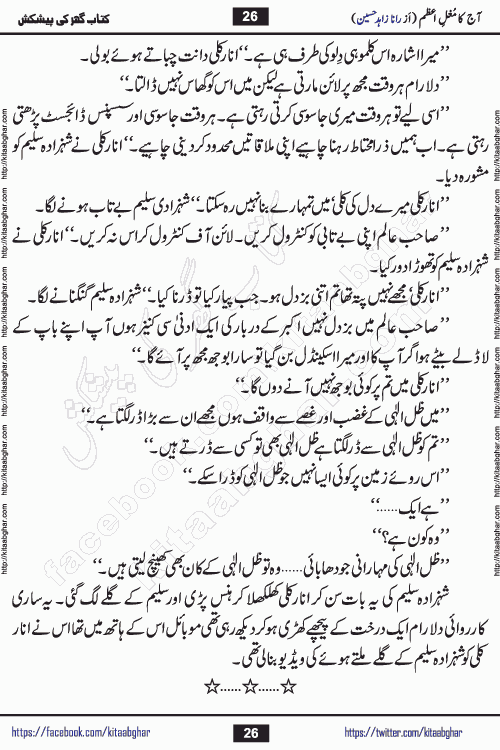 آج کا مُغلِ اعظم (از رانا زاہد حسین)
26
کتاب گھر کی پیشکش
’’میرا اشارہ اس کلموہی دِلو کی طرف ہی ہے۔‘‘ انار کلی دانت چباتے ہوئے بولی۔
’’دلارام ہر وقت مجھ پر لائن مارتی ہے لیکن میں اس کو گھاس نہیں ڈالتا۔‘‘
’’اسی لیے تو ہر وقت میری جاسوسی کرتی رہتی ہے۔ ہر وقت جاسوسی اور سسپنس ڈائجسٹ پڑھتی
رہتی ہے۔ اب ہمیں ذرا محتاط رہنا چاہیے اپنی ملاقاتیں محدود کر دینی چاہیے۔‘‘ انار کلی نے شہزادہ سلیم کو
مشورہ دیا۔
’’انار کلی میرے دل کی کلی‘ میں تمہارے بنا نہیں رہ سکتا۔‘‘ شہزادی سلیم بے تاب ہونے لگا۔
’’صاحب عالم اپنی بے تابی کو کنٹرول کریں۔ لائن آف کنٹرول کراس نہ کریں۔‘‘ انار کلی نے
شہزادہ سلیم کو تھوڑا دور کیا۔
’’انار کلی‘ مجھے نہیں پتہ تھا تم اتنی بزدل ہو۔ جب پیار کیا تو ڈرنا کیا۔‘‘ شہزادہ سلیم گنگنانے لگا۔
’’صاحب عالم میں بزدل نہیں اکبر کے دربار کی ایک ادنیٰ سی کنیز ہوں آپ اپنے باپ کے
لاڈلے بیٹے ہو اگر آپ کا اور میرا اسکینڈل بن گیا تو سارا بوجھ مجھ پر آئے گا۔‘‘
’’انار کلی میں تم پر کوئی بوجھ نہیں آنے دوں گا۔‘‘
’’میں ظل الٰہی کے غضب اور غصے سے واقف ہوں مجھے ان سے بڑا ڈر لگتا ہے۔‘‘
’’تم کو ظل الٰہی سے ڈر لگتا ہے ظل الٰہی بھی تو کسی سے ڈرتے ہیں۔‘‘
’’اس روئے زمین پر کوئی ایسا نہیں جو ظل الٰہی کو ڈرا سکے۔‘‘
’’ہے ایک......‘‘
’’وہ کون ہے؟‘‘
’’ظل الٰہی کی مہارانی جودھا بائی...... وہ تو ظل الٰہی کے کان بھی کھینچ لیتی ہیں۔‘‘
شہزادہ سلیم کی یہ بات سن کر انار کلی کھلکھلا کر ہنس پڑی اور سلیم کے گلے لگ گئی۔ یہ ساری
کارروائی دلارام ایک درخت کے پیچھے کھڑی ہو کر دیکھ رہی تھی موبائل اس کے ہاتھ میں تھا اس نے انار
کلی کو شہزادہ سلیم کے گلے ملتے ہوئے کی ویڈیو بنا لی تھی۔
☆......☆......☆
https://facebook.com/kitaabghar
26
https://twitter.com/kitaabghar
http://kitaabghar.com http://kitaabghar.com http://kitaabghar.com http://kitaabghar.com http://kitaabghar.com http://kitaabghar.com
http://kitaabghar.com http://kitaabghar.com http://kitaabghar.com http://kitaabghar.com http://kitaabghar.com http://kitaabghar.com